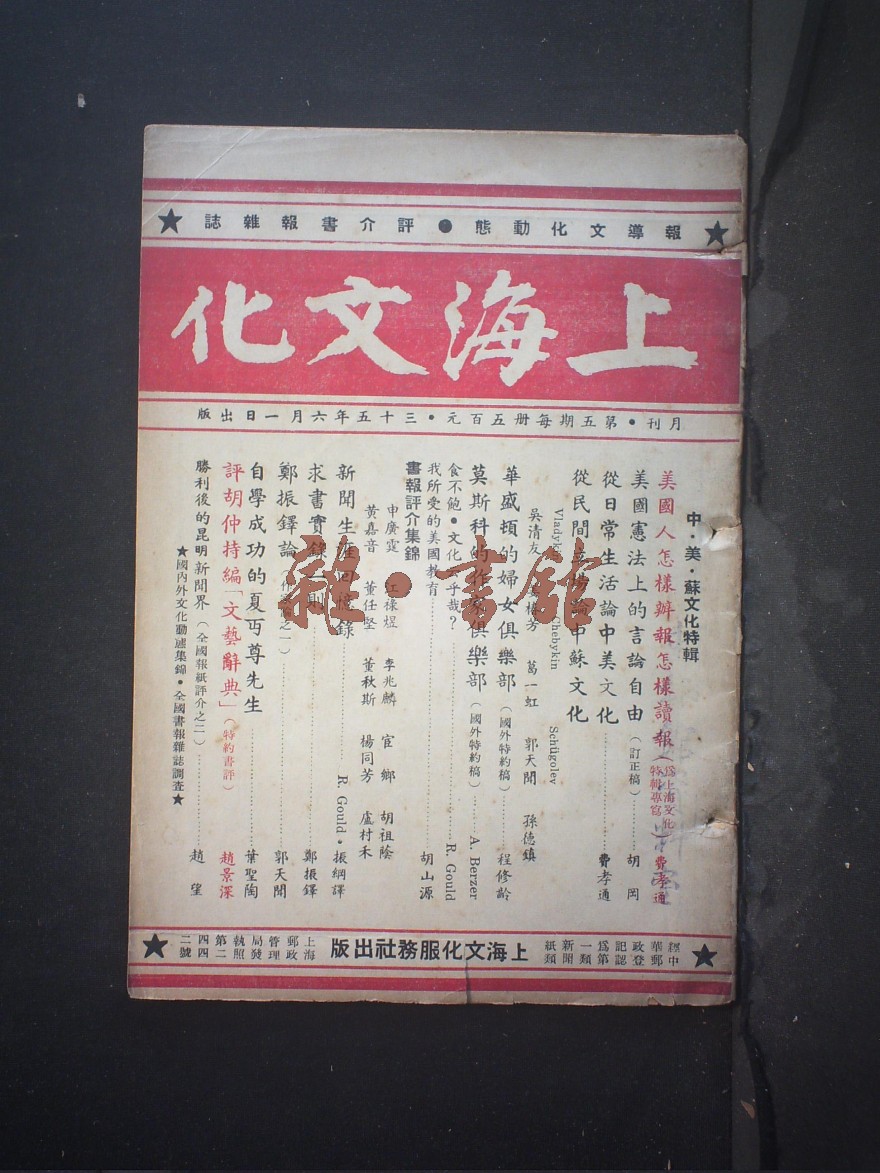 ★報導文化動態●評介書報雜誌★
上海文化
月刊•第五期每册五百元•三十五年六月一日出版
中•美•蘇文化特輯
美國人怎樣辦報怎樣讀報(爲上海文化特輯專寫)費孝通
美國憲法上的言論自由(訂正稿)胡岡
從日常生活論中美文化費孝通
從民間立場論中蘇文化
Vladykin Chebykin Schügolev
吳清友 梅芳 葛一虹 郭天聞 孫德鎮
華盛頓的婦女俱樂部(國外特約稿)程修齡
莫斯科的作家俱樂部(國外特約稿)A. Berzer
食不飽•文化云乎哉?R. Gould
我所受的美國教育胡山源
書報評介集錦
申廣霆 江棣煜 李兆麟 宦鄉 胡祖蔭
黃嘉音 董任堅 董秋斯 楊同芳 盧村禾
新聞生涯回憶錄R. Gould•振綱譯
求書實錄一則鄭振鐸
鄭振鐸論(作家論之一)郭天聞
自學成功的夏丏尊先生葉聖陶
評胡仲持編「文藝辭典」(特約書評)趙景深
勝利後的昆明新聞界(全國報紙評介之二)趙望
★國內外文化動遞集錦•全國書報雜誌調查★
★經中華郵政登記認爲第一類新聞紙類
上海文化服務社出版
上海郵政管理局發執照第二四四二號★
雜•書館